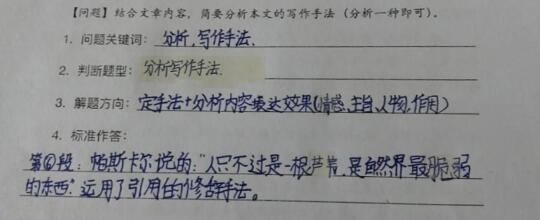 【问题】结合文章内容，简要分析本文的写作手法（分析一种即可）。
1. 问题关键词：分析，写作手法.
2. 判断题型：分析写作手法.
3. 解题方向：定手法+分析内容表达效果(情感,主旨,人物,作用)
4. 标准作答：
第⑥段：帕斯卡尔说的："人只不过是一根芦苇，是自然界最脆弱
的东西."运用了引用的修辞手法。